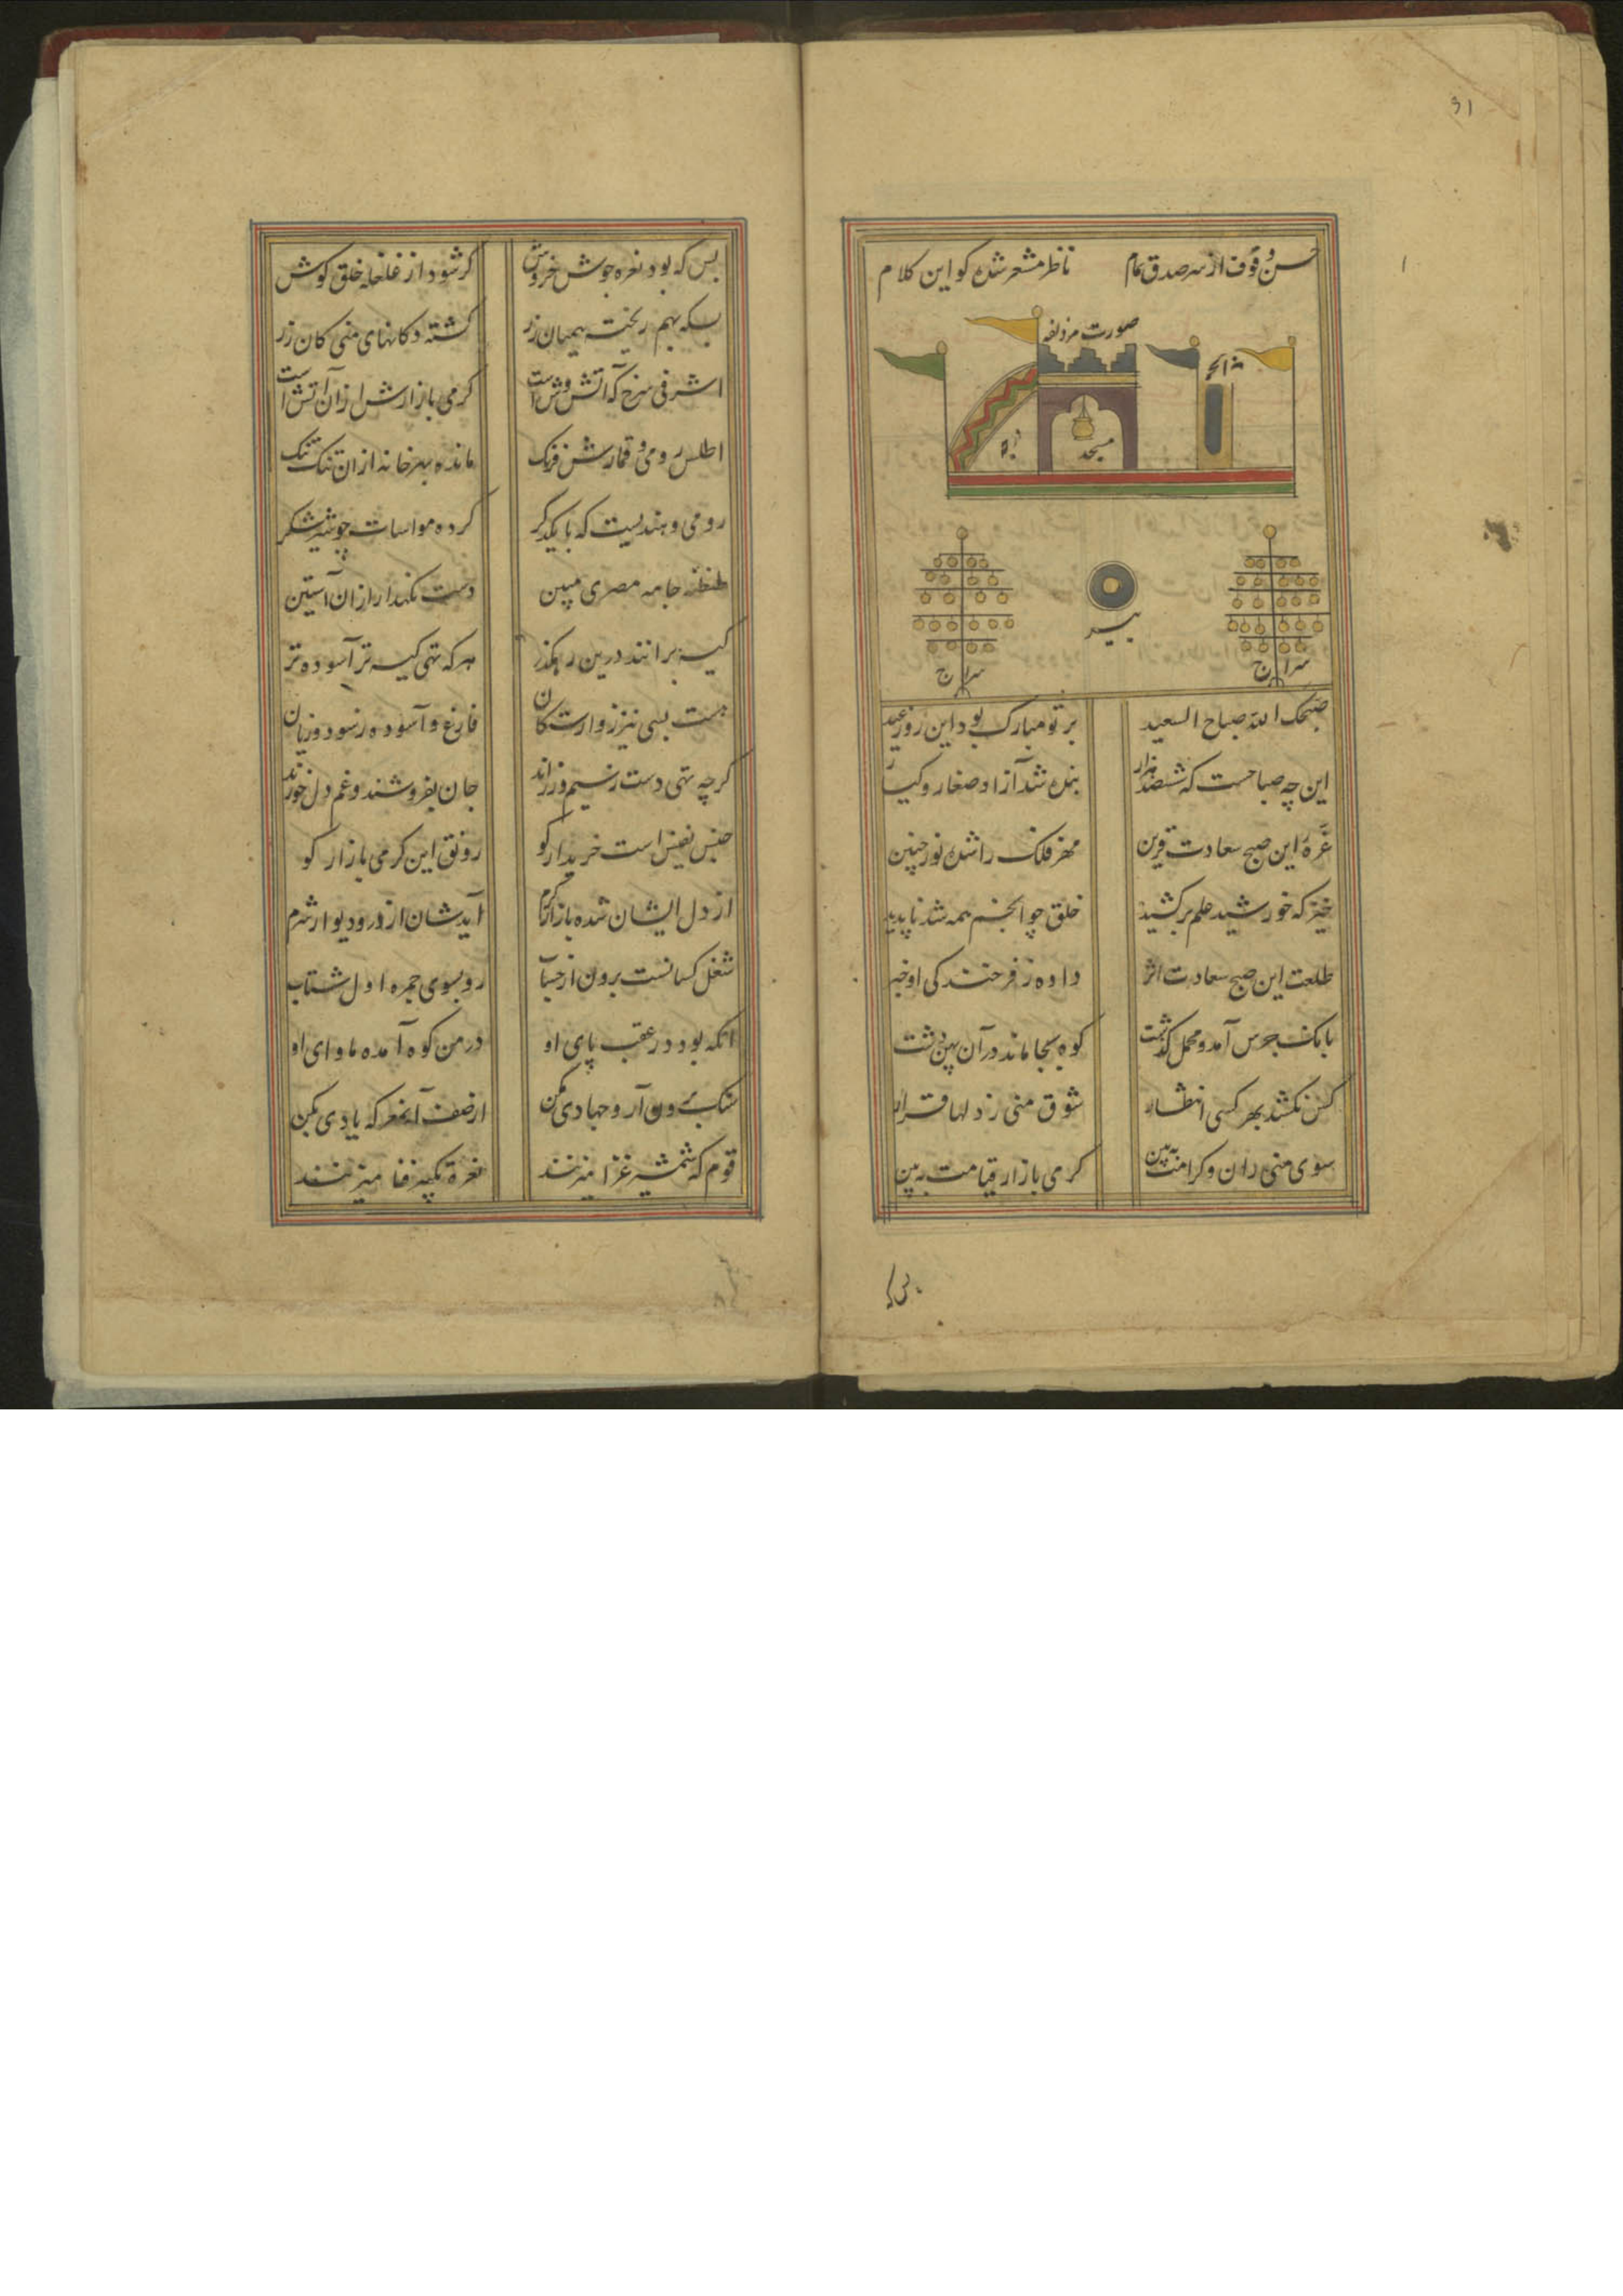 31
حسن وقوف از سر صدق تمام ناظر مشعر شده کو این کلام
صورت مزدلفه
مسجد
بیر
سراج
سراج
صبحک الله صباح السعید بر تو مبارک بود این روز عید
این چه صباحست که ششصد هزار بنده شد آزاد صغار و کبار
غره این صبح سعادت قرین مهر فلک را شده نور جبین
خیز که خورشید علم برکشید خلق چو انجم همه شد ناپدید
طلعت این صبح سعادت اثر داده ز فرخندکی او خبر
بانک جرس آمد و محمل کذشت کوه بجا ماند در آن پهن دشت
کس نکشد بهر کسی انتظار شوق منی زد لها قرار
سوی منی ران و کرامت ببین کرمی بازار قیامت ببین
بس که بود نعره جوش و خروش کر شود از غلغله خلق کوش
بسکه بهم ریخت همیان زر کشته دکانهای منی کان زر
اشرفی سرخ که آتش وش است کرمی بازارش از آن آتش است
اطلس رومی و قمارش فرنک مانده بهر خانه از آن تنک تنک
رومی و هندیست که با یکدکر کرده مواسات چو شیر و شکر
طنطنه جامه مصری مبین دست نکهدار از آن آستین
کیسه برانند درین رهکذر هر که تهی کیسه تر آسوده تر
هست بسی نیز ز وارستکان فارغ و آسوده ز سود و زیان
کرچه تهی دست ز سیم و زراند جان بفروشند و غم دل خورند
جنس نفیس است خریدار کو رونق این کرمی بازار کو
از دل ایشان شده بازار کرم آیدشان از در و دیوار شرم
شغل کسانست برون از حساب رو بسوی جمره اول شتاب
آنکه بود در عقب پای او در من کوه آمده ماوای او
سنک برون آر و جهادی بکن از صف آن معرکه یادی بکن
قوم که شمشیر غزا میزنند نعره تکبیر فنا میزنند